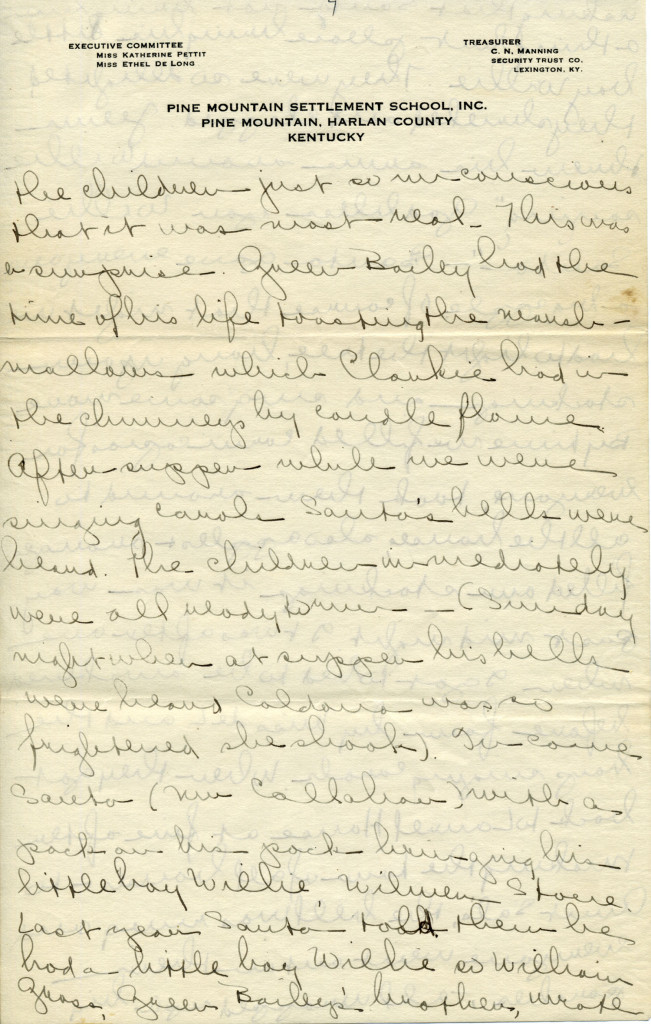 7
EXECUTIVE COMMITTEE
MISS KATHERINE PETTIT
MISS ETHEL DE LONG
TREASURER
C. N. MANNING
SECURITY TRUST CO.
LEXINGTON, KY.
PINE MOUNTAIN SETTLEMENT SCHOOL, INC.
PINE MOUNTAIN, HARLAN COUNTY
KENTUCKY
the children just so un-conscious
that it was most real. This was
a surprise. Green Bailey had the
time of his life toasting the marsh-
mallows which had in
the chimneys by candle flame.
After supper while we were
singing carols Santa's bells were
heard. The children immediately
were all ready to run — (Sunday
night when at supper his bells
were heard was so
frightened she shook). In came
Santa (Mr Callahan) with a
pack on his pack bringing his
little boy Willie, Wilmer Stone.
Last year Santa told them he
had a little boy Willie so William
Green Bailey's brother, wrote